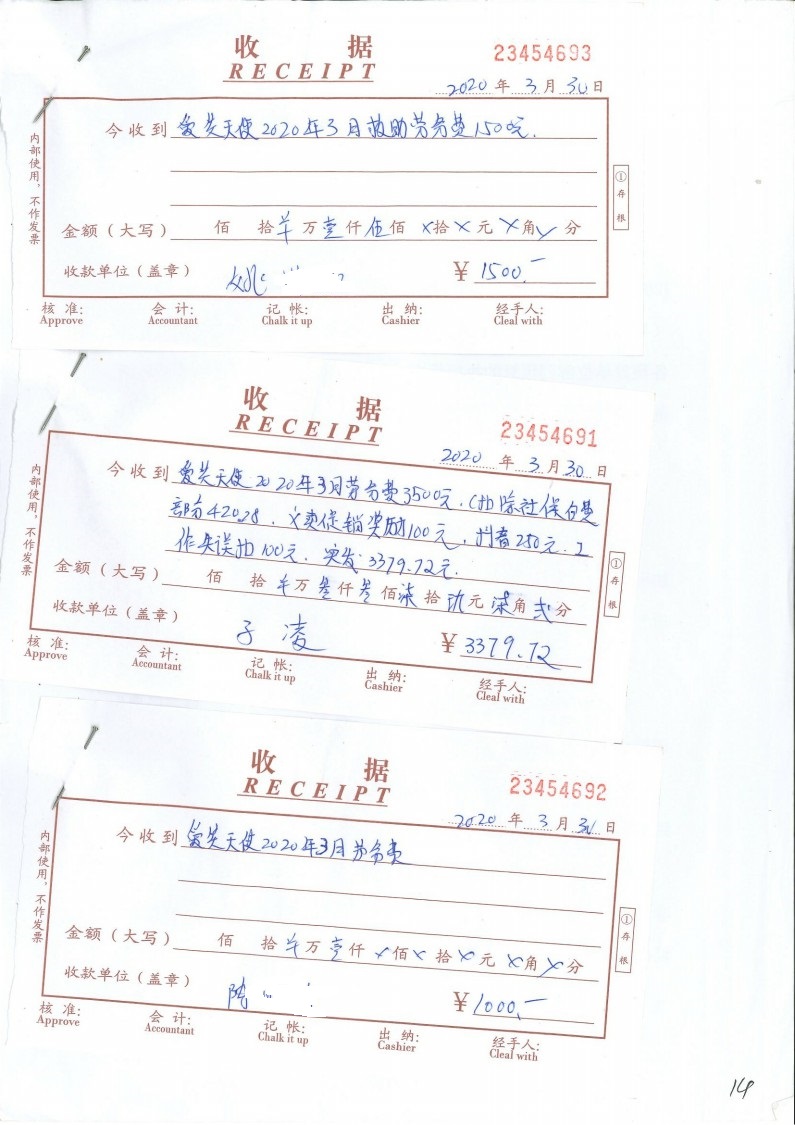 收 据
RECEIPT
23454693
2020 年 3 月 30 日
今收到 爱芙天使2020年3月救助劳务费1500元.
内部使用，不作发票
①存根
金额（大写） 佰 拾 羊 万 壹 仟 伍 佰 X 拾 X 元 X 角 X 分
收款单位（盖章） 姚
¥ 1500.—
核 准: 会 计: 记 帐: 出 纳: 经手人:
Approve Accountant Chalk it up Cashier Cleal with
收 据
RECEIPT
23454691
2020 年 3 月 30 日
今收到 爱芙天使2020年3月劳务费3500元.（扣除社保自费
部分420.28，义卖促销奖励100元，抖音250元.工
作失误扣100元. 实发3379.72元.
内部使用，不作发票
①存根
金额（大写） 佰 拾 羊 万 叁 仟 叁 佰 柒 拾 玖 元 柒 角 弍 分
收款单位（盖章） 子凌
¥ 3379.72
核 准: 会 计: 记 帐: 出 纳: 经手人:
Approve Accountant Chalk it up Cashier Cleal with
收 据
RECEIPT
23454692
2020 年 3 月 30 日
今收到 爱芙天使2020年3月劳务费
内部使用，不作发票
①存根
金额（大写） 佰 拾 羊 万 壹 仟 X 佰 X 拾 X 元 X 角 X 分
收款单位（盖章） 陈
¥ 1000.—
核 准: 会 计: 记 帐: 出 纳: 经手人:
Approve Accountant Chalk it up Cashier Cleal with
14